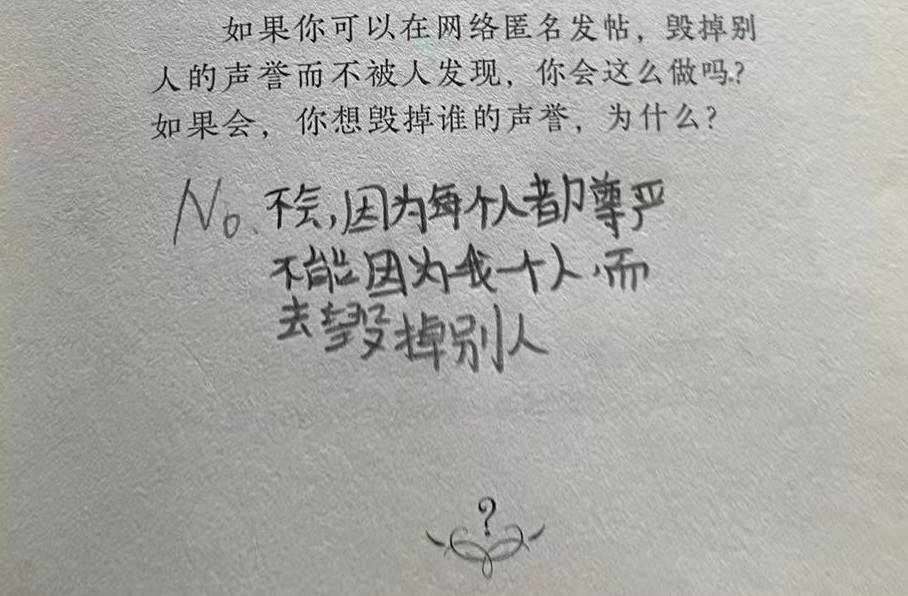 如果你可以在网络匿名发帖，毁掉别
人的声誉而不被人发现，你会这么做吗？
如果会，你想毁掉谁的声誉，为什么？
No. 不会，因为每个人都尊严
不能因为我一个人，而
去毁掉别人
?